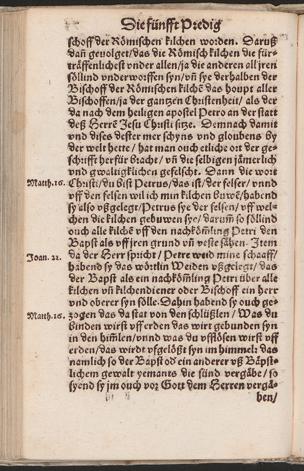 Die fünfft Predig
schoff der Römischen kilchen worden. Daruß
dañ geuolget/ das die Römisch kilchen die für-
träffenlichest vnder allen/ ja die anderen all jren
söllind vnderworffen syn/ vñ sye derhalben der
Bischoff der Römischen kilchẽ das houpt aller
Bischoffen/ ja der gantzen Christenheit/ als der
da nach dem heiligen apostel Petro an der statt
deß Herrẽ Jesu Christi sitze. Demnach damit
vnd dises dester mer schyns vnd gloubens by
der welt hette/ hat man ouch etliche ort der ge-
schrifft herfür bracht/ vñ die selbigen jämerlich
vnd gwaltigklichen gefelscht. Dann die wort
Matth.16. Christi/ du bist Petrus/ das ist/ der felser/ vnnd
vff den felsen wil ich min kilchen buwẽ/ habend
sy also vßgelegt/ Petrus sye der felsen/ vff wel-
chen die kilchen gebuwen sye/ darum̃ so söllind
ouch alle kilchẽ vff den nachköm̃ling Petri den
Bapst als vff jren grund vñ veste sähen. Item
Joan. 21. da der Herr spricht/ Petre weid mine schaaff/
habend sy das wörtlin Weiden vßgelegt/ das
der Bapst als ein nachköm̃ling Petri über alle
kilchen vñ kilchendiener oder Bischoff ein herr
vnd oberer syn sölle. Dahin habend sy ouch ge-
Matth.16. zogen das da stat von den schlüßlen/ Was du
binden wirst vff erden das wirt gebunden syn
in den him̃len/ vnnd was du vfflösen wirst vff
erden/ das wirdt vfgelößt syn im himmel: das
namlich so der Bapst od' ein anderer vß Bäpst-
lichem gewalt yemants die sünd vergäbe/ so
syend sy jm ouch vor Gott dem Herren vergä-
ben/